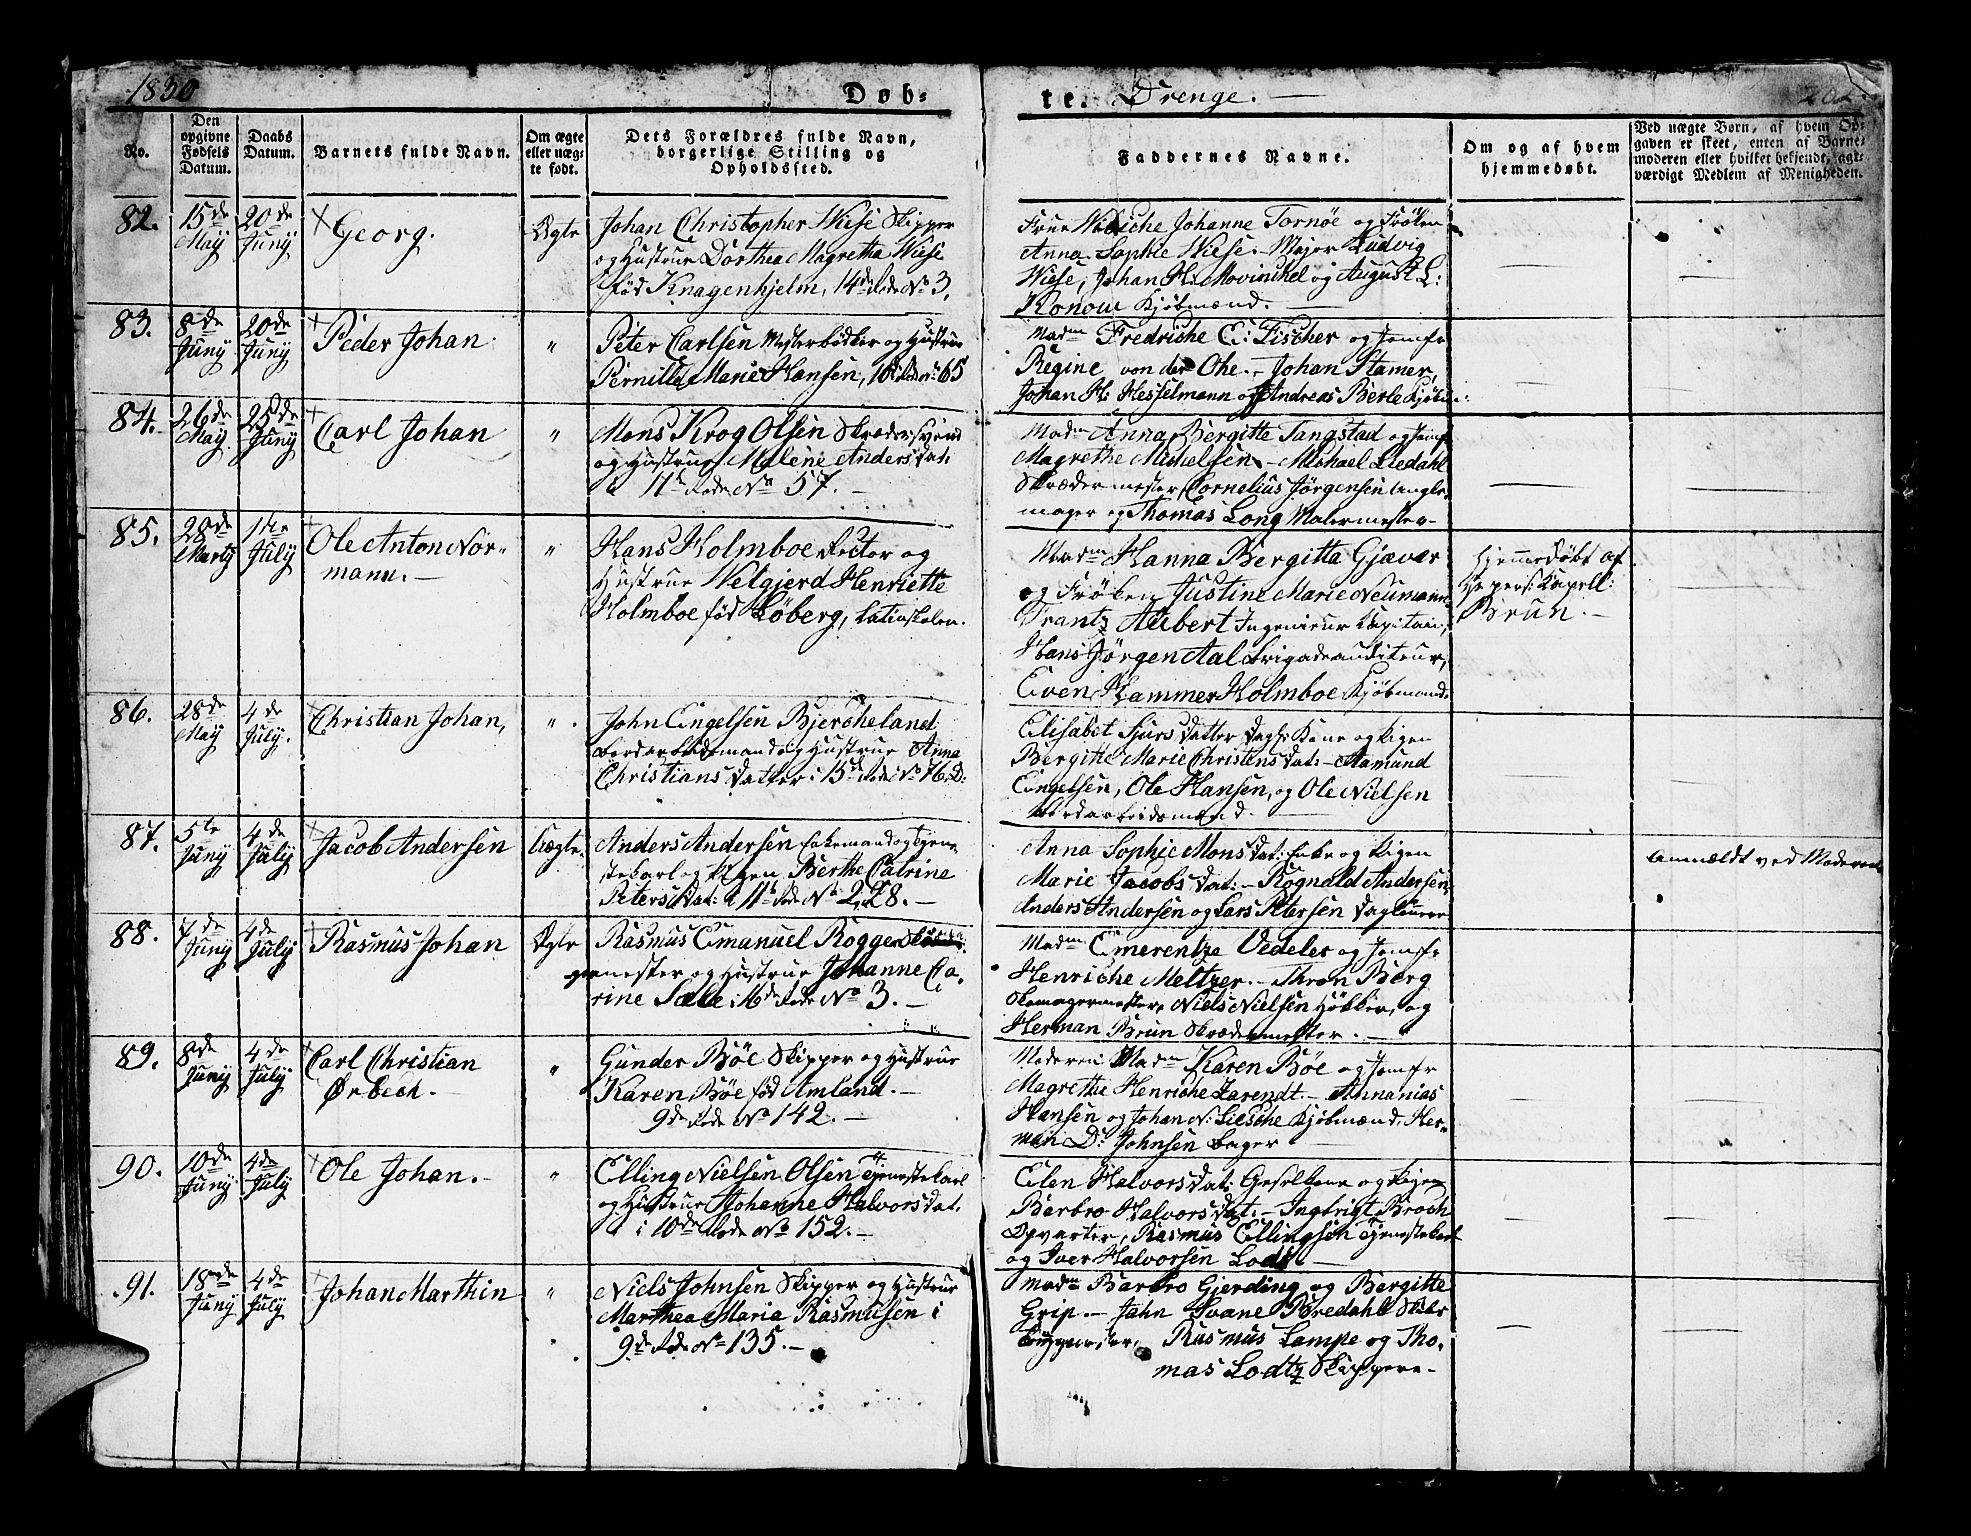 1830 Døb-
te. Drenge. 202.
No.
Den opgivne Fødsels Datum.
Daabs Datum.
Barnets fulde Navn.
Om ægte eller uægte født.
Dets Forældres fulde Navn, borgerlige Stilling og Opholdssted.
Faddernes Navne.
Om og af hvem hjemmedøbt.
Ved uægte Børn, af hvem Opgaven er skeet, enten af Barnemoderen eller hvilket bekjendt, agtværdigt Medlem af Menigheden.
82. 15de May 20de Juny
Georg.
Ægte
Johan Christopher Wiese Skipper
og Hustrue Dorthea Magretha Wiese
fød Knagenhjelm, 14de Rode No 3.
Frue Wibiche Johanne Tornöe og Frøken
Anna Sophie Wiese. Major Ludvig
Wiese, Johan H: Movinckel og August L:
Konow Kjøbmænd.
83. 8de Juny 20de Juny
Peder Johan
"
Peter Carlsen Mesterbødker og Hustrue
Pernille Marie Hansen, 18de Rode No 65
Madm Fredriche C: Fischer og Jomfr
Regine von der Ohe. - Johan Stamer,
Johan H: Hesselmann og Andreas Berle Kjøbm:
84. 26de May 25de Juny
Carl Johan
"
Mons Krog Olsen Skrædersvend
og Hustrue Malene Andersdat:
i 11te Rode No 57. -
Madm Anna Bergitte Tangstad og Jomfr
Magrethe Michelsen - Michael Liedahl
Skrædermester, Cornelius Jørgensen
mager og Thomas Long Malermester -
85. 28de Martz 1ste July
Ole Anton Nor-
mann. -
"
Hans Holmboe Rector og
Hustrue Welgjerd Henriette
Holmboe fød Løberg, Latinskolen.
Madm Hanna Bergitta Gjævær
og Frøken Justine Marie Neumann
Frantz Aubert Ingenieur Capitain,
Hans Jørgen Aal Brigadeauditeur,
Even Hammer Holmboe Kjøbmænd.
Hjemmedøbt af
Hr pers: Kapell:
Brun. -
86. 28de May 4de July.
Christian Johan,
" .
John Engelsen Bjerckeland
Jordarbeidsmand og Hustrue Anna
Christiansdatter i 15de Rode No 76. D:
Elisabet Sjursdatter Dagk: Kone og Pigen
Bergithe Marie Christensdat: - Aamund
Engelsen, Ole Hansen, og Ole Nielsen
Jordarbeidsmænd. -
87. 5te Juny 4de July
Jacob Andersen
Uægte.
Anders Andersen Enkemand og tjene-
stekarl og Pigen Berthe Catrine
Petersdat: i 11te Rode No 2,28. -
Anna Sophie Monsdat: Enke og Pigen
Marie Jacobsdat: - Rognald Andersen,
Anders Andersen og Lars Petersen Dagleiere
Anmældt ved Moderen
88. 7de Juny 4de July
Rasmus Johan
Ægte
Rasmus Emanuel Roggen
germester og Hustrue Johanne Ca-
rine Sælle i 16de Rode No 3. -
Madm Emerentze Vedeler og Jomfr
Henriche Meltzer. - Thron Berg
Skomagermester, Niels Nielsen Høkker, og
Herman Brun Skrædermester. -
89. 8de Juny 4de July
Carl Christian
Ørbech. -
"
Gunder Bøe Skipper og Hustrue
Karen Bøe fød Amland. -
9de Rode No 142. -
Moderen Madm Karen Bøe og Jomfr
Magrethe Henriche Zarendt. - Annanias
Hansen og Johan N: Giesche Kjøbmænd. Her-
man D: Johnsen Bager
90. 10de Juny 4de July
Ole Johan. -
"
Elling Nielsen Olsen Tjenestekarl
og Hustrue Johanne Halvorsdat.
i 10de Rode No 152. -
Elen Halvorsdat: Geselkone og Pigen
Barbro Halvorsdat: - Ingbrigt Broch
Opvarter, Rasmus Ellingsen Tjenestekarl
og Iver Halvorsen Lods -
91. 18de Juny 4de July
Johan Marthin
"
Niels Johnsen Skipper og Hustrue
Marthea Maria Rasmusen i
9de Rode No 135. -
Madm Barbro Gjerding og Bergitte
Grip. - Jahn Svane Børedahl Skibs
byggmester, Rasmus Lampe og Tho-
mas Lodtz Skippere -